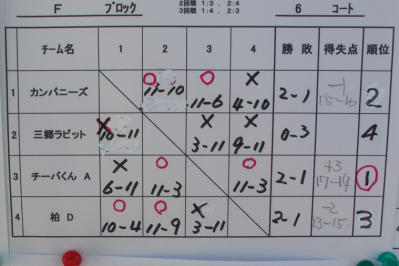 2回戦 1:3, 2:4
F ブロック 3回戦 1:4, 2:3 6 コート
チーム名 1 2 3 4 勝 敗 得失点 順位
1 カンパニーズ ○ 11-10 ○ 11-6 × 4-10 2-1 -1 2
2 三郷ラビット × 10-11 × 3-11 × 9-11 0-3 4
3 チーバくん A × 6-11 ○ 11-3 ○ 11-3 2-1 +3 17-14 1
4 柏 D ○ 10-4 ○ 11-9 × 3-11 2-1 -2 13-15 3